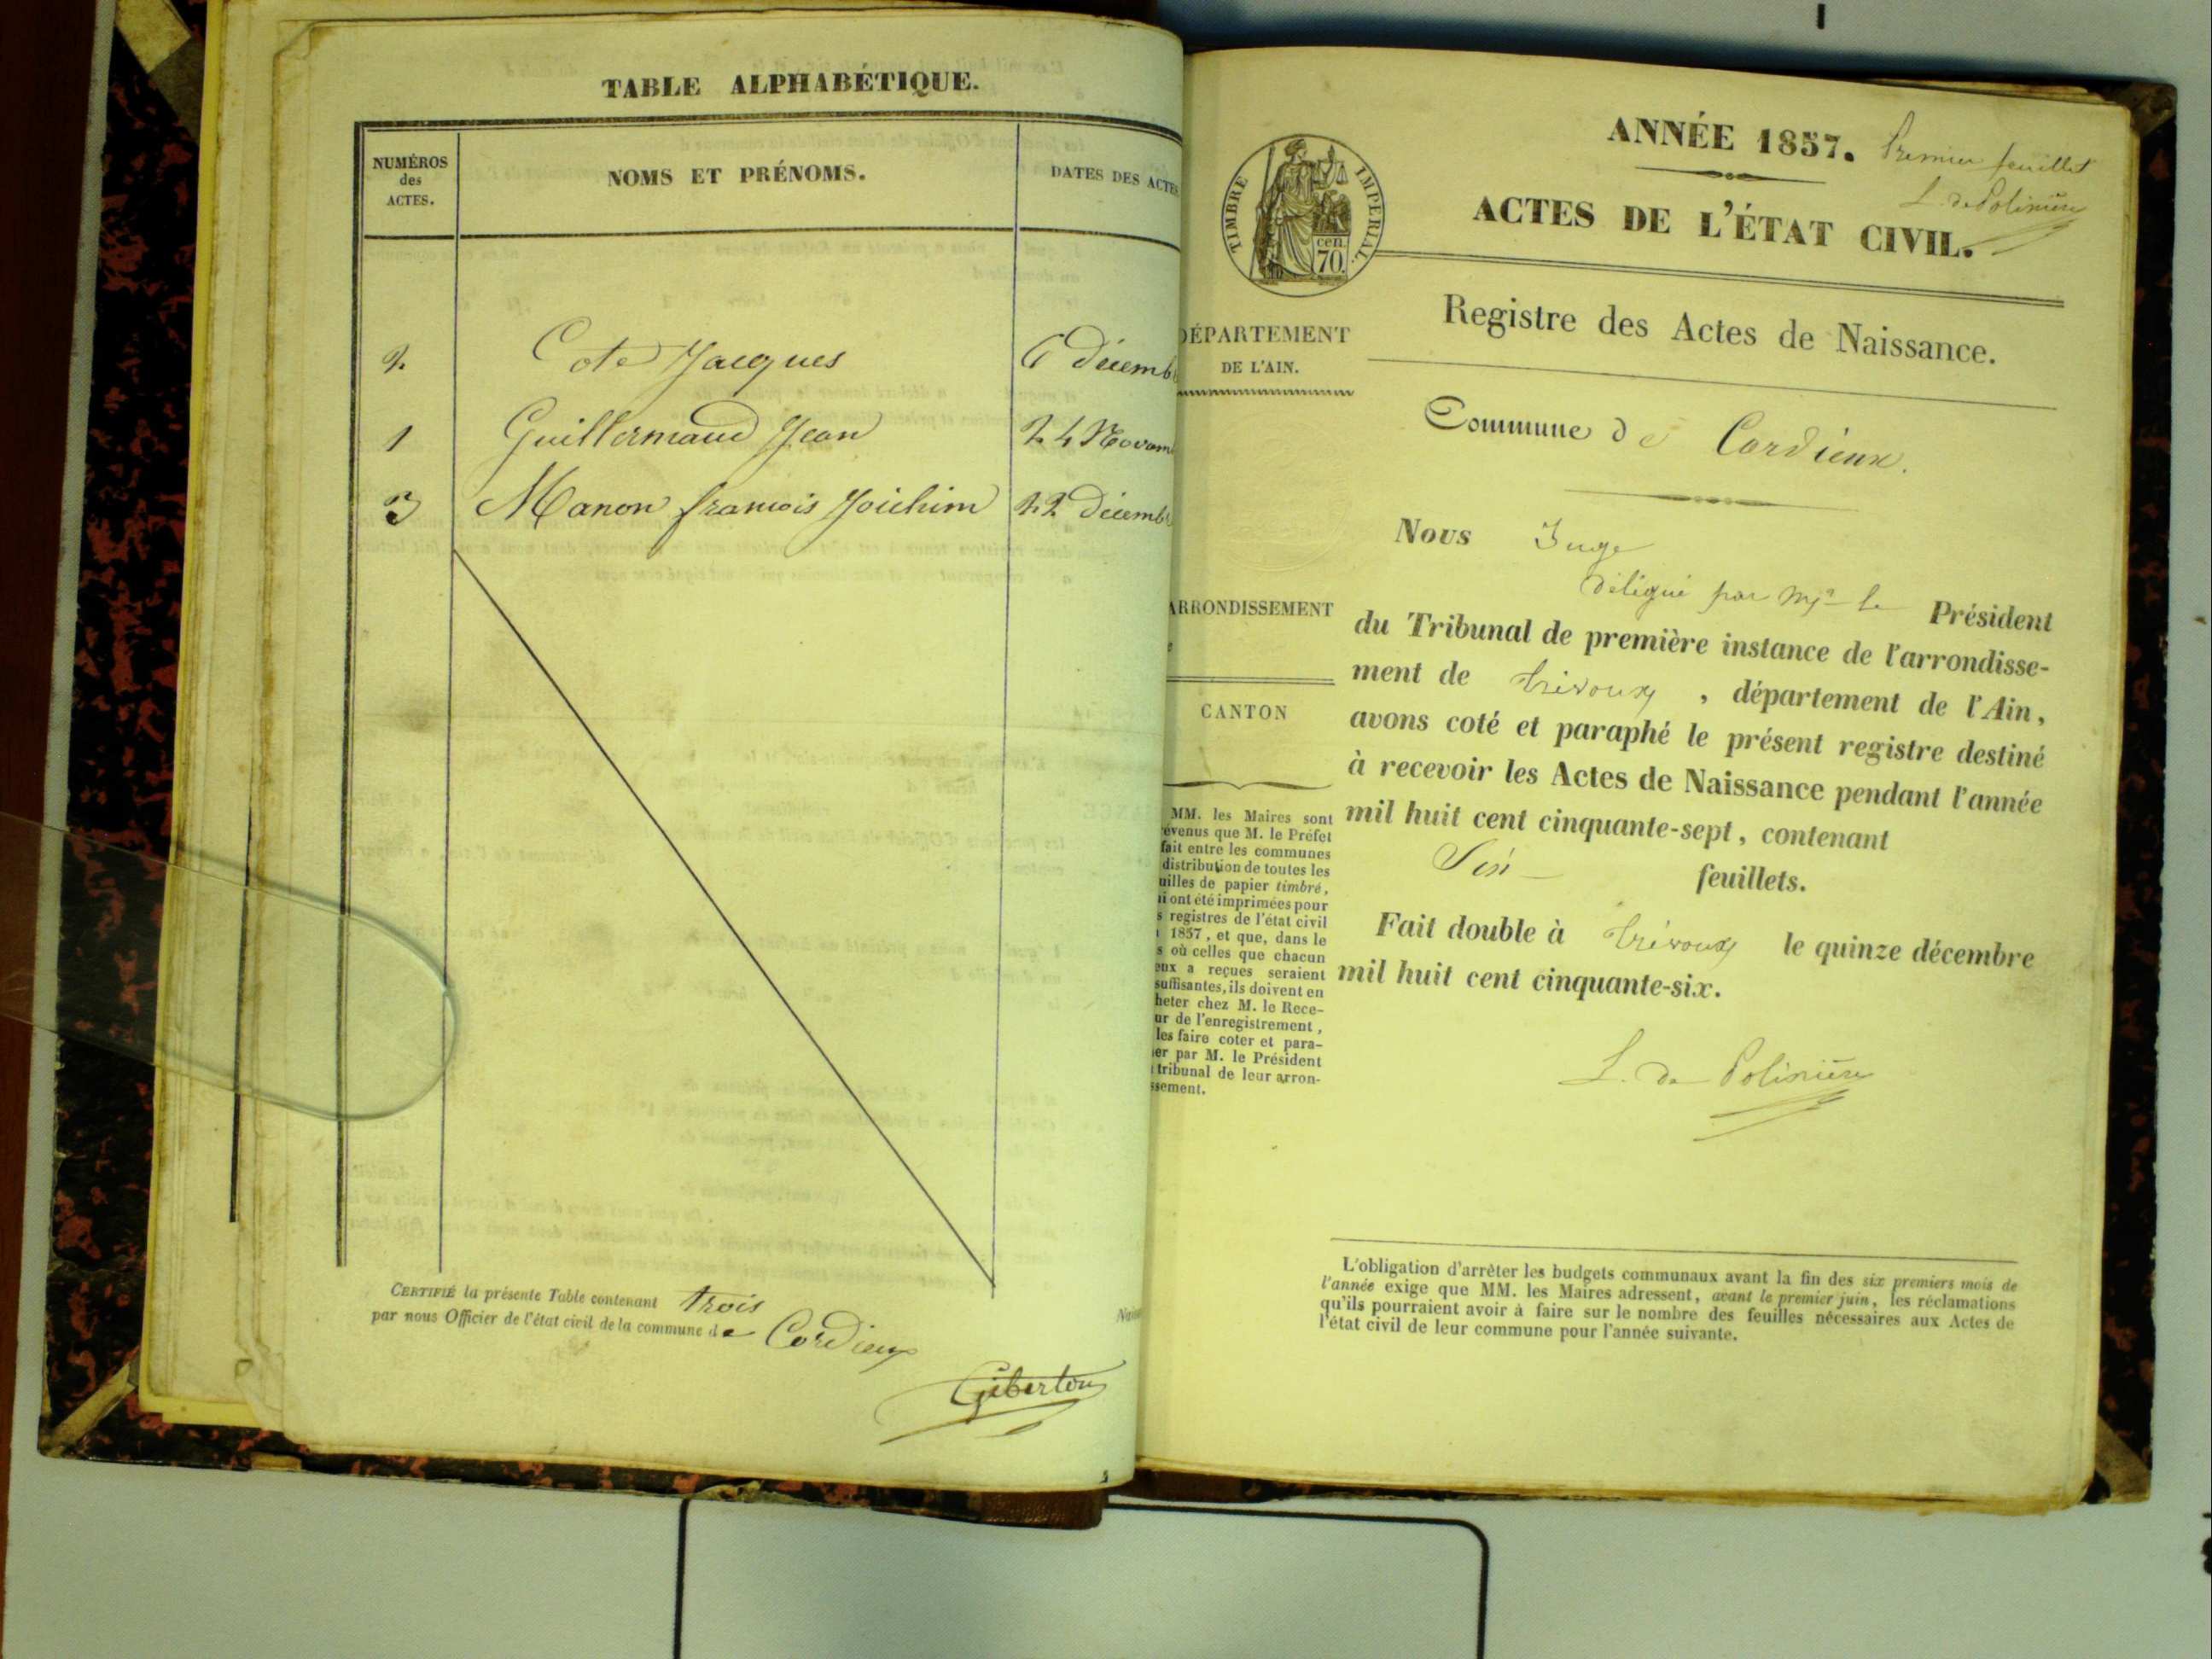 TABLE ALPHABÉTIQUE.
NUMÉROS des ACTES.
NOMS ET PRÉNOMS.
DATES DES ACTES
2. Cote Jacques 6 Décemb
1 Guillermaud Jean 24 Novem
3 Manon francois Joichim 22 Décemb
CERTIFIÉ la présente Table contenant trois
par nous Officier de l'état civil de la commune de Cordieux
Giberton
ANNÉE 1857. Premier feuillet
L. de Polinière
ACTES DE L'ÉTAT CIVIL.
TIMBRE IMPÉRIAL.
cen. 70.
Registre des Actes de Naissance.
DÉPARTEMENT
DE L'AIN.
Commune de Cordieux.
ARRONDISSEMENT
CANTON
MM. les Maires sont
évenus que M. le Préfet
fait entre les communes
distribution de toutes les
uilles de papier timbré,
ui ont été imprimées pour
s registres de l'état civil
1857, et que, dans le
s où celles que chacun
eux a reçues seraient
suffisantes, ils doivent en
heter chez M. le Rece-
ur de l'enregistrement,
les faire coter et para-
er par M. le Président
tribunal de leur arron-
ssement.
Nous Juge
délégué par Mr le Président
du Tribunal de première instance de l'arrondisse-
ment de Trévoux, département de l'Ain,
avons coté et paraphé le présent registre destiné
à recevoir les Actes de Naissance pendant l'année
mil huit cent cinquante-sept, contenant
Six feuillets.
Fait double à Trévoux le quinze décembre
mil huit cent cinquante-six.
L. de Polinière
L'obligation d'arrêter les budgets communaux avant la fin des six premiers mois de
l'année exige que MM. les Maires adressent, avant le premier juin, les réclamations
qu'ils pourraient avoir à faire sur le nombre des feuilles nécessaires aux Actes de
l'état civil de leur commune pour l'année suivante.